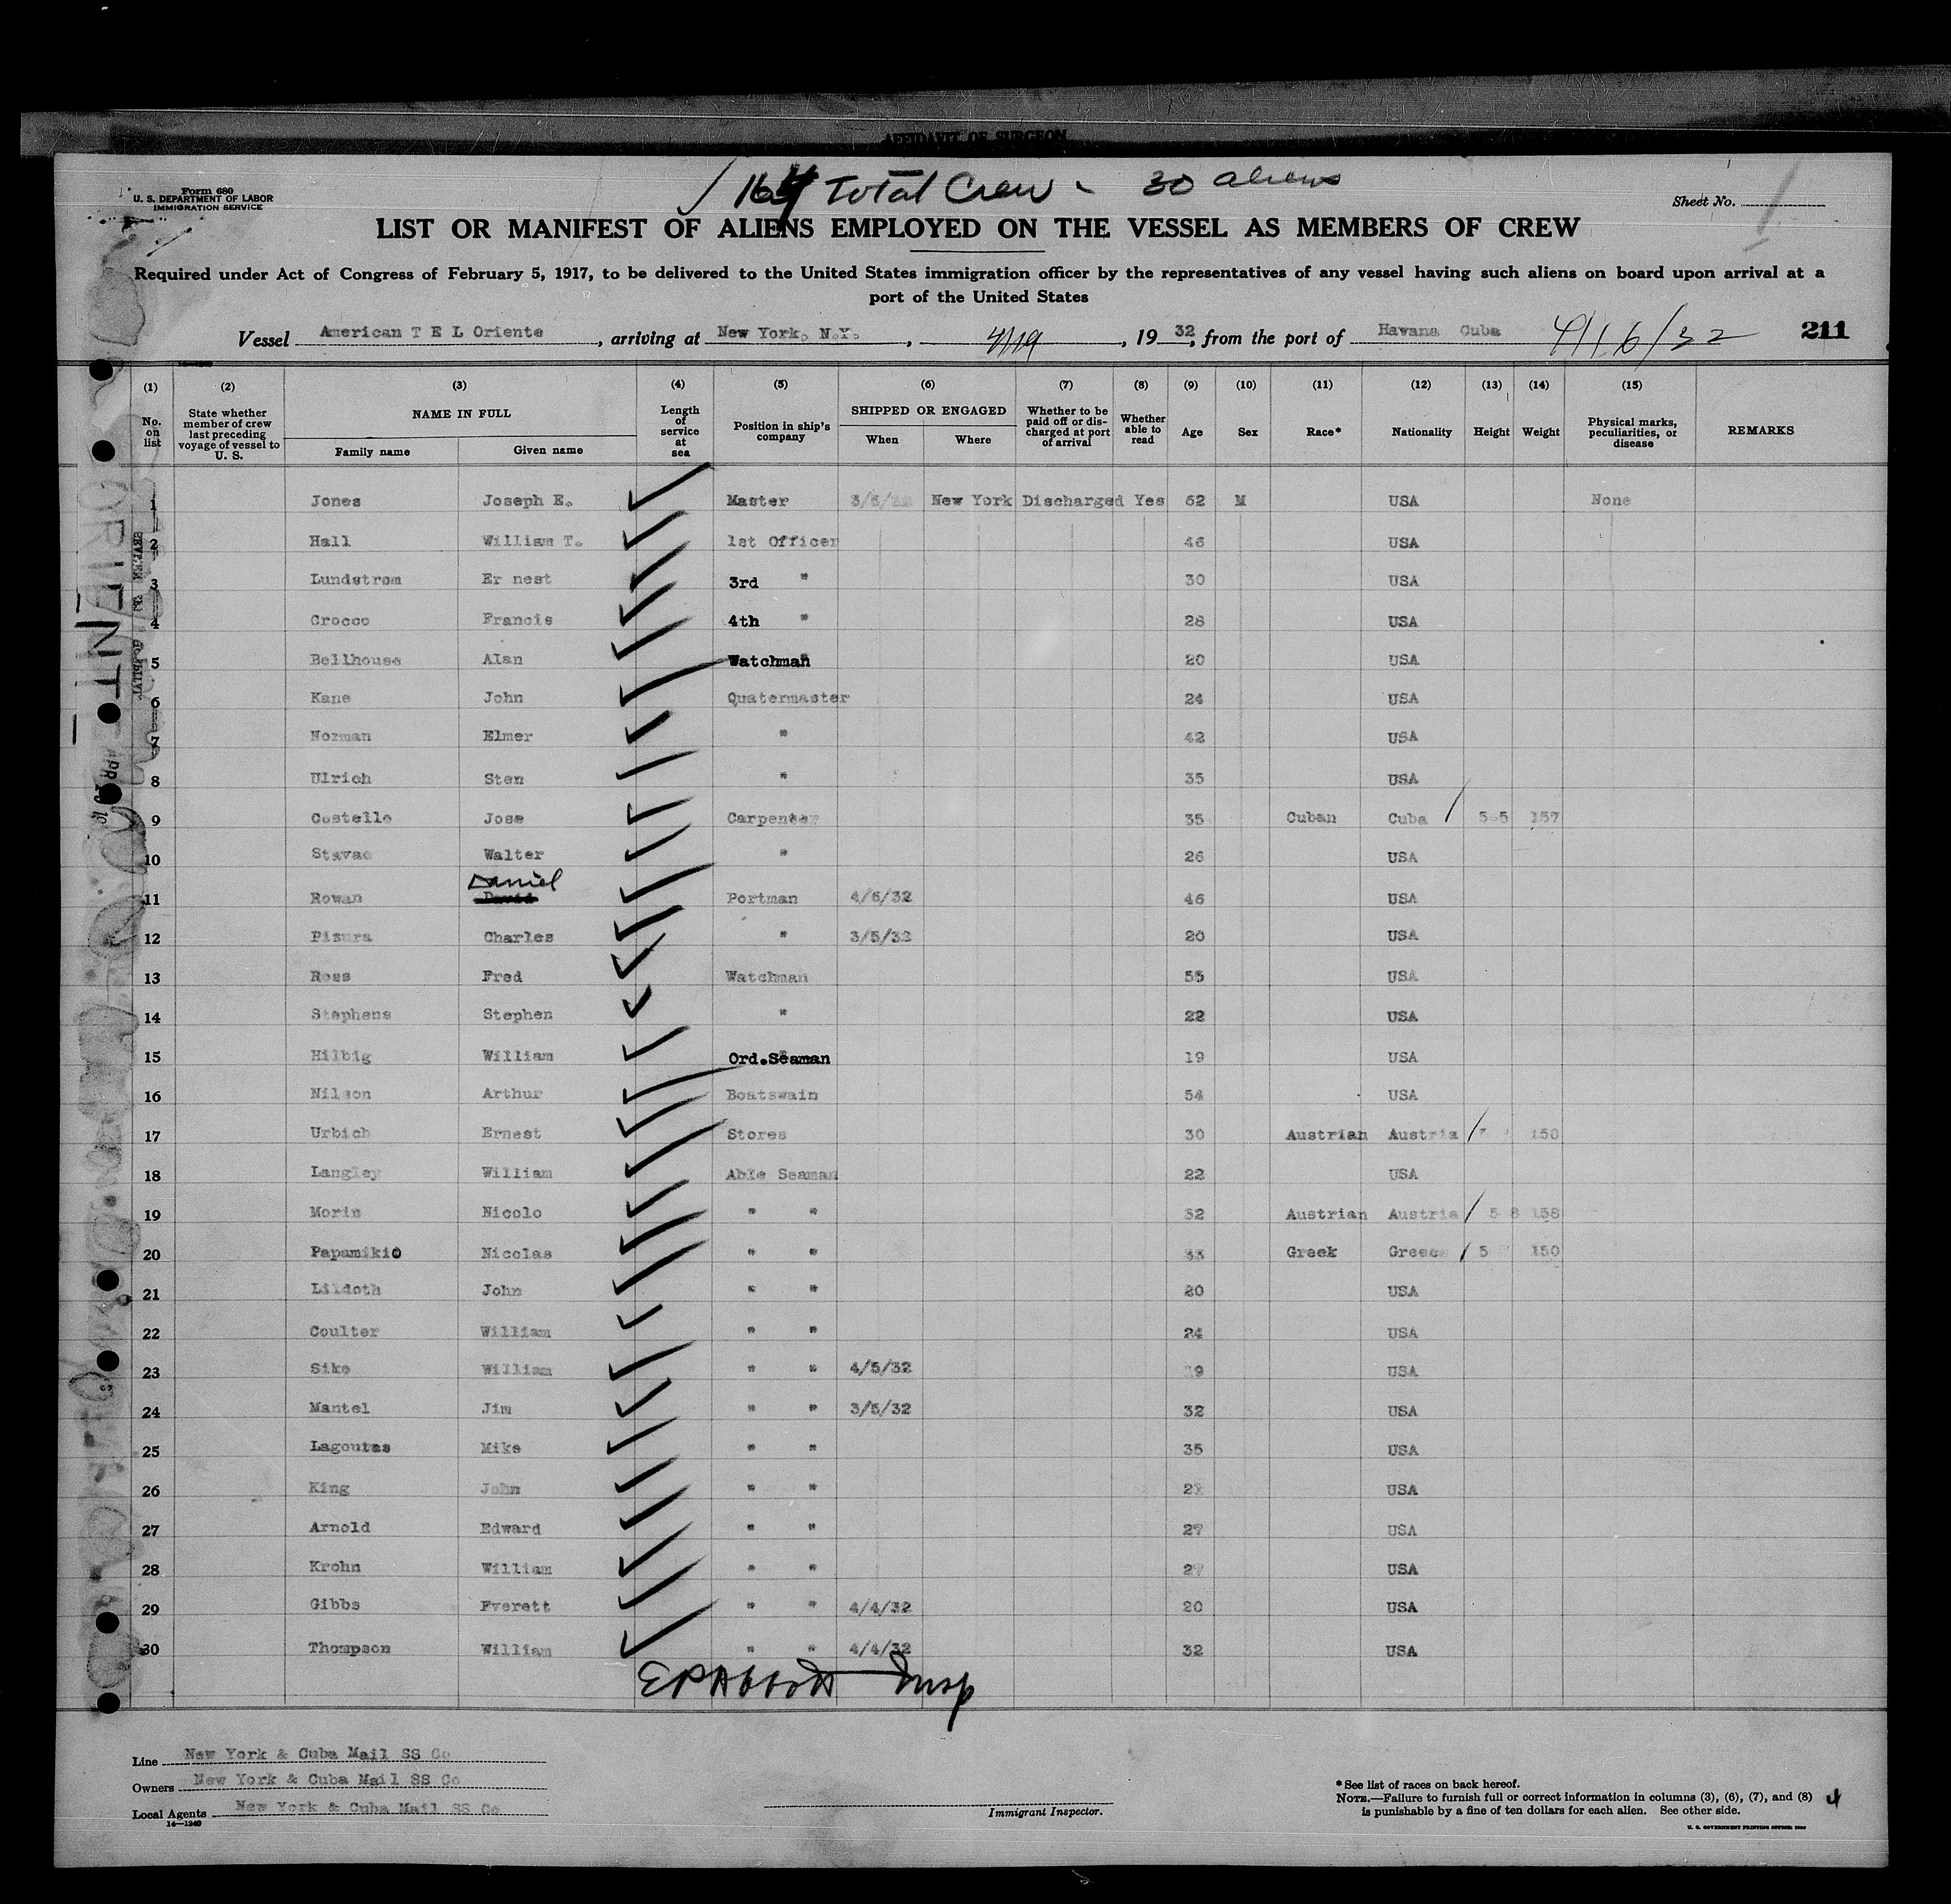 AFFIDAVIT OF SURGEON
164 Total Crew - 30 aliens
Form 680
U. S. DEPARTMENT OF LABOR
IMMIGRATION SERVICE
Sheet No. 1
LIST OR MANIFEST OF ALIENS EMPLOYED ON THE VESSEL AS MEMBERS OF CREW
Required under Act of Congress of February 5, 1917, to be delivered to the United States immigration officer by the representatives of any vessel having such aliens on board upon arrival at a
port of the United States
Vessel American T E L Oriente, arriving at New York, N.Y., 4/19, 19 32, from the port of Havana Cuba 4/16/32 211
(1) (2) (3) (4) (5) (6) (7) (8) (9) (10) (11) (12) (13) (14) (15)
No. on list State whether member of crew last preceding voyage of vessel to U. S. NAME IN FULL Family name Given name Length of service at sea Position in ship's company SHIPPED OR ENGAGED When Where Whether to be paid off or discharged at port of arrival Whether able to read Age Sex Race* Nationality Height Weight Physical marks, peculiarities, or disease REMARKS
1 Jones Joseph E. Master 3/5/32 New York Discharged Yes 62 M USA None
2 Hall William T. 1st Officer 46 USA
3 Lundstrom Er nest 3rd " 30 USA
4 Crocco Francis 4th " 28 USA
5 Bellhouse Alan Watchman 20 USA
6 Kane John Quatermaster 24 USA
7 Norman Elmer " 42 USA
8 Ulrich Sten " 35 USA
9 Costello Jose Carpenter 35 Cuban Cuba / 5-5 157
10 Stavac Walter " 26 USA
Daniel
11 Rowan David Portman 4/6/32 46 USA
12 Pisura Charles " 3/5/32 20 USA
13 Ross Fred Watchman 55 USA
14 Stephens Stephen " 22 USA
15 Hilbig William Ord.Seaman 19 USA
16 Nilson Arthur Boatswain 54 USA
17 Urbich Ernest Stores 30 Austrian Austria / 150
18 Langley William Able Seaman 22 USA
19 Morin Nicolo " " 32 Austrian Austria / 5-8 158
20 Papamikio Nicolas " " 33 Greek Greece / 5 150
21 Lildoth John " " 20 USA
22 Coulter William " " 24 USA
23 Sike William " " 4/5/32 USA
24 Mantel Jim " " 3/5/32 32 USA
25 Lagoutas Mike " " 35 USA
26 King John " " USA
27 Arnold Edward " " 27 USA
28 Krohn William " " 27 USA
29 Gibbs Everett " " 4/4/32 20 USA
30 Thompson William " " 4/4/32 32 USA
E P Abbott Insp
Line New York & Cuba Mail SS Co
Owners New York & Cuba Mail SS Co
Local Agents New York & Cuba Mail SS Co
14—1240
Immigrant Inspector.
* See list of races on back hereof.
NOTE.—Failure to furnish full or correct information in columns (3), (6), (7), and (8)
is punishable by a fine of ten dollars for each alien. See other side.
U. S. GOVERNMENT PRINTING OFFICE
4
ORIENTE
APR